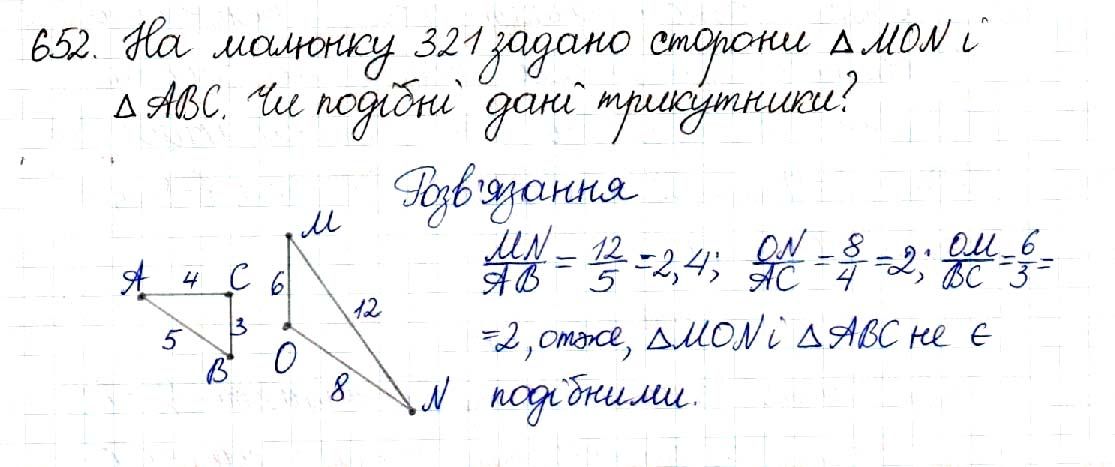 652. На малюнку 321 задано сторони △ MON і
△ ABC. Чи подібні дані трикутники?
Розв'язання
MN/AB = 12/5 = 2,4; ON/AC = 8/4 = 2; OM/BC = 6/3 =
= 2, отже, △ MON і △ ABC не є
подібними.
M
A 4 C 6
12
5 3
B O
8 N